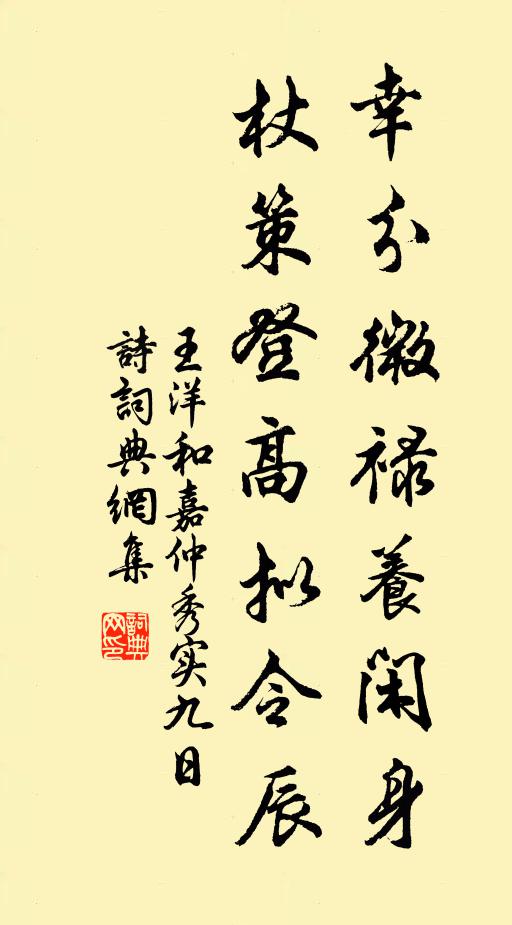 幸分微禄養閑身
杖策登高拟令辰
王洋和嘉仲秀实九日
詩詞典網集
詞典网印